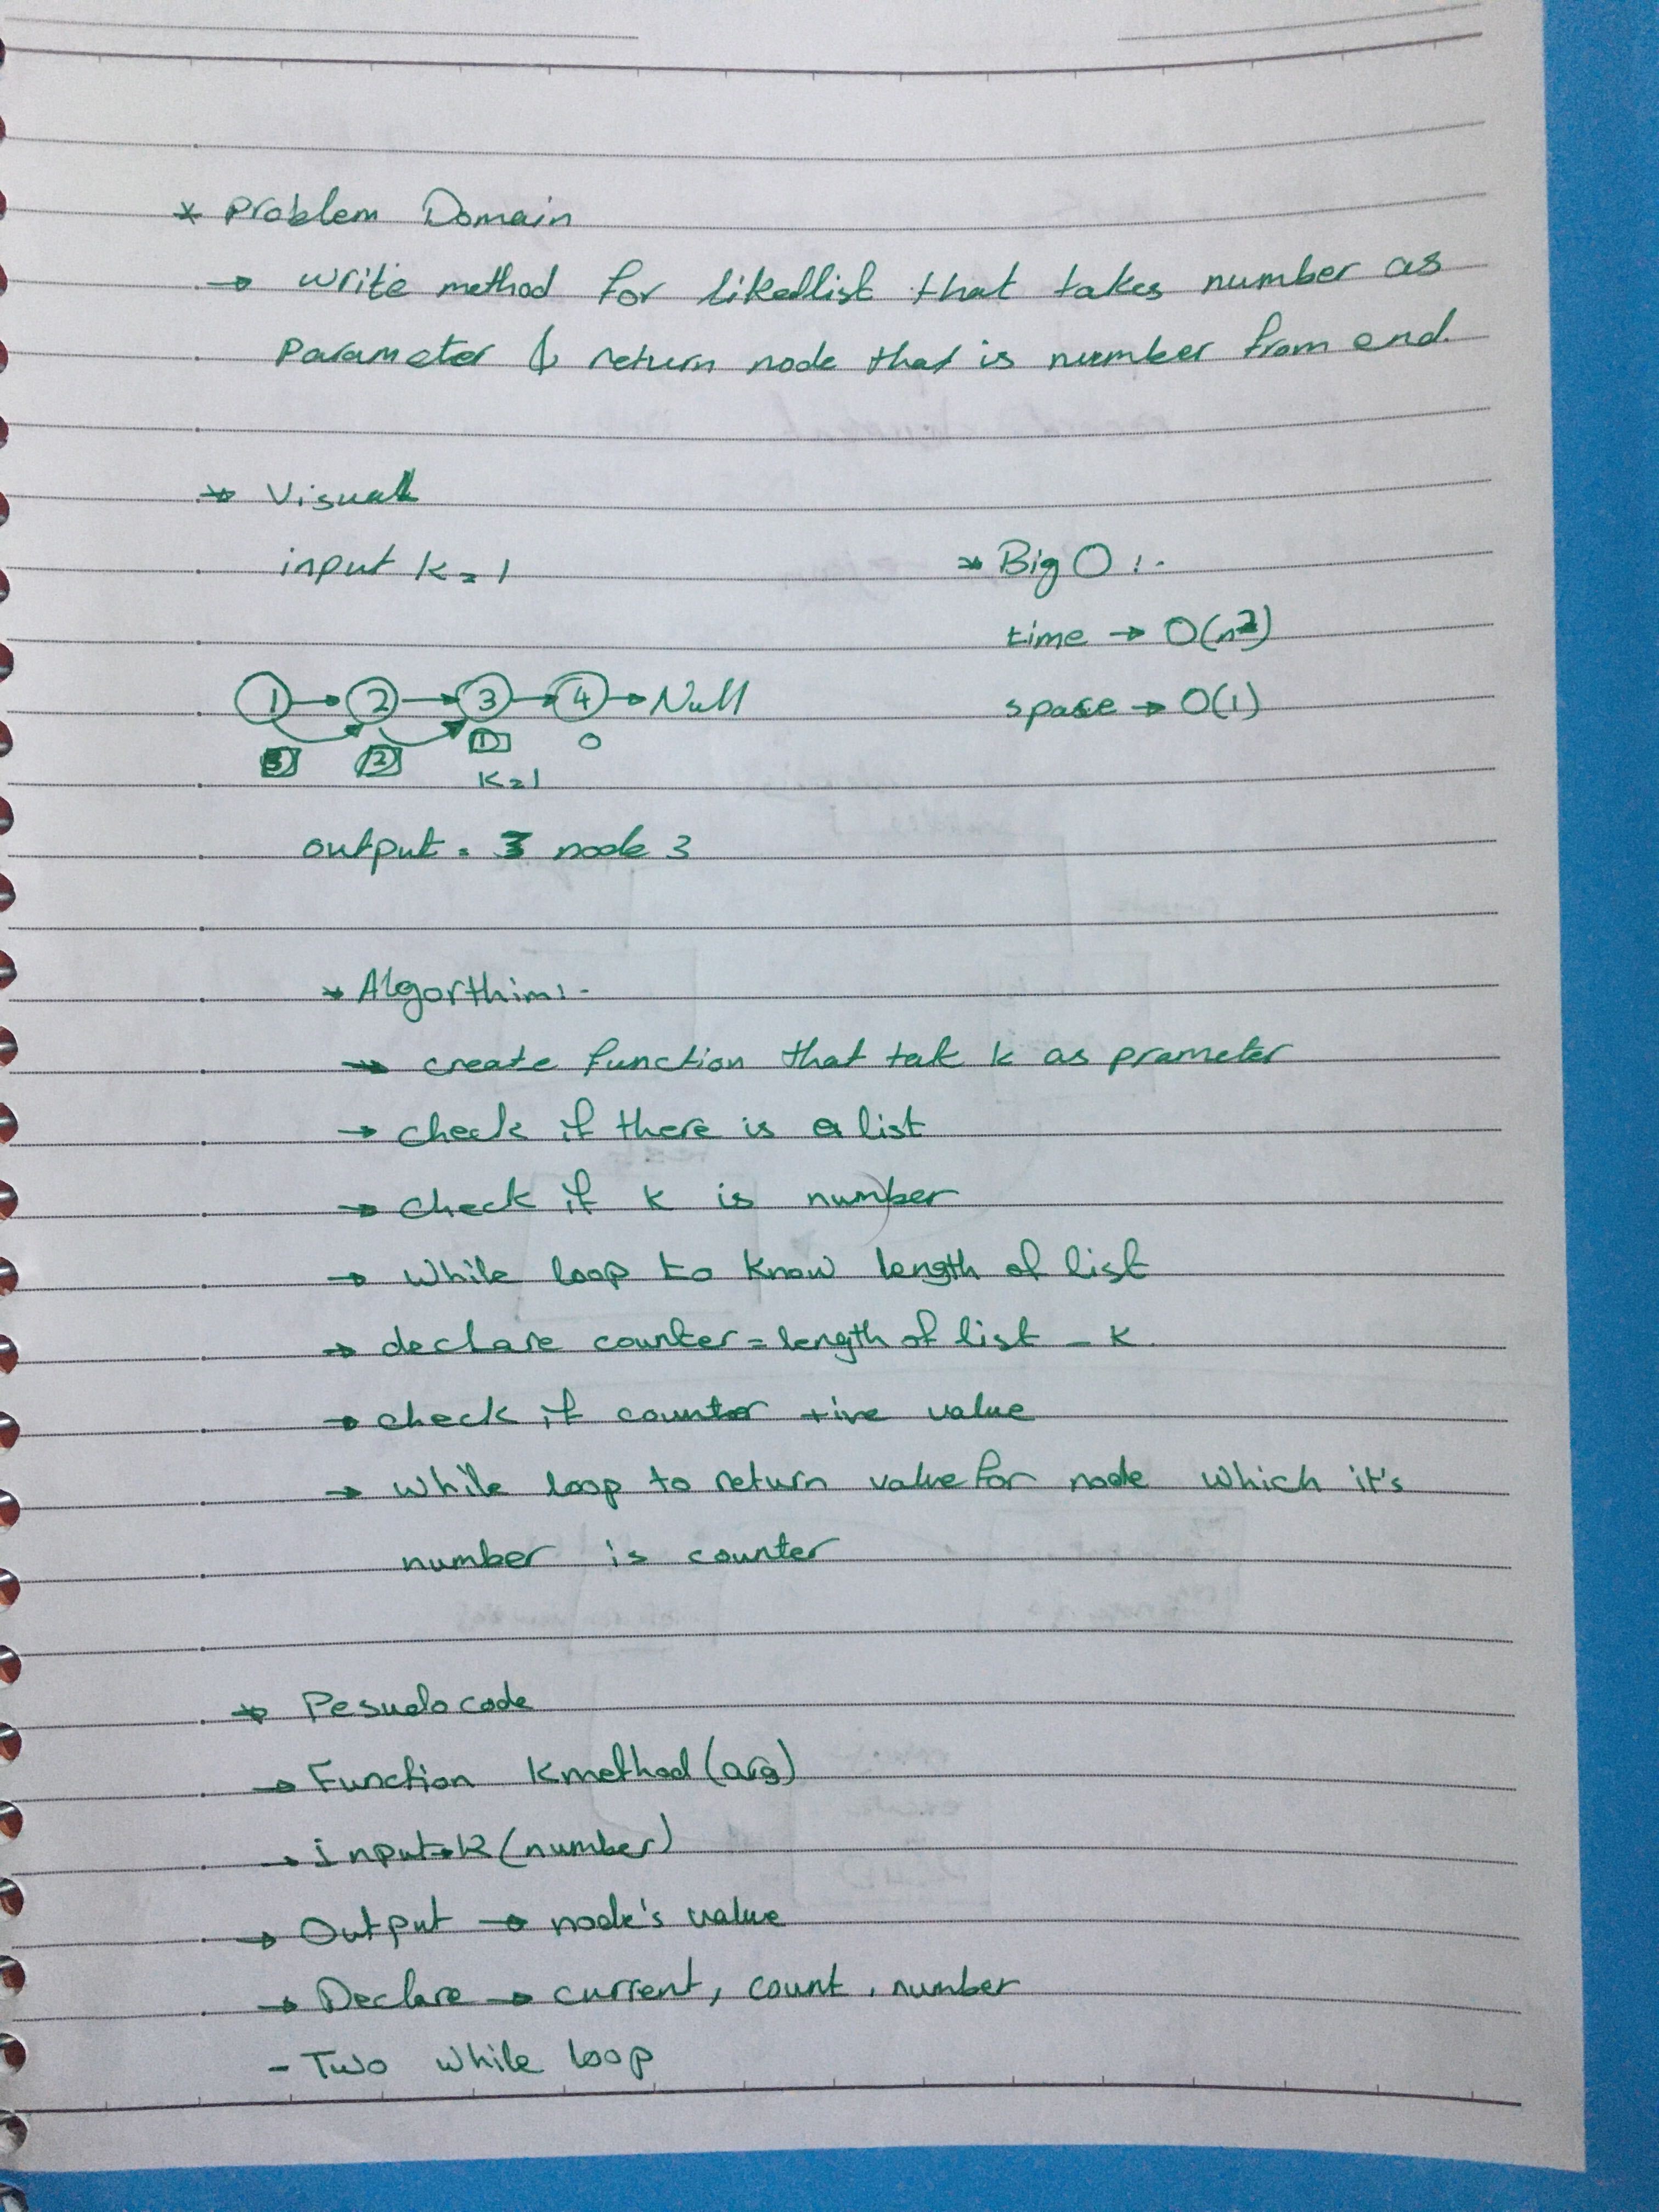 * Problem Domain
→ write method for likedlist that takes number as
Parameter & return node that is number from end.
* Visual
input k = 1
1 → 2 → 3 → 4 → Null
3 2 1 0
k=1
output = 3 node 3
* Big O :-
time → O(n2)
space → O(1)
* Algorthim:-
→ create function that tak k as prameter
→ check if there is a list
→ check if k is number
→ while loop to know length of list
→ declare counter = length of list - k
→ check if counter +ive value
→ while loop to return value for node which it's
number is counter
* Pesudocode
→ Function Kmethod (arg)
→ input → k (number)
→ Output → node's value
→ Declare → current, count, number
- Two while loop